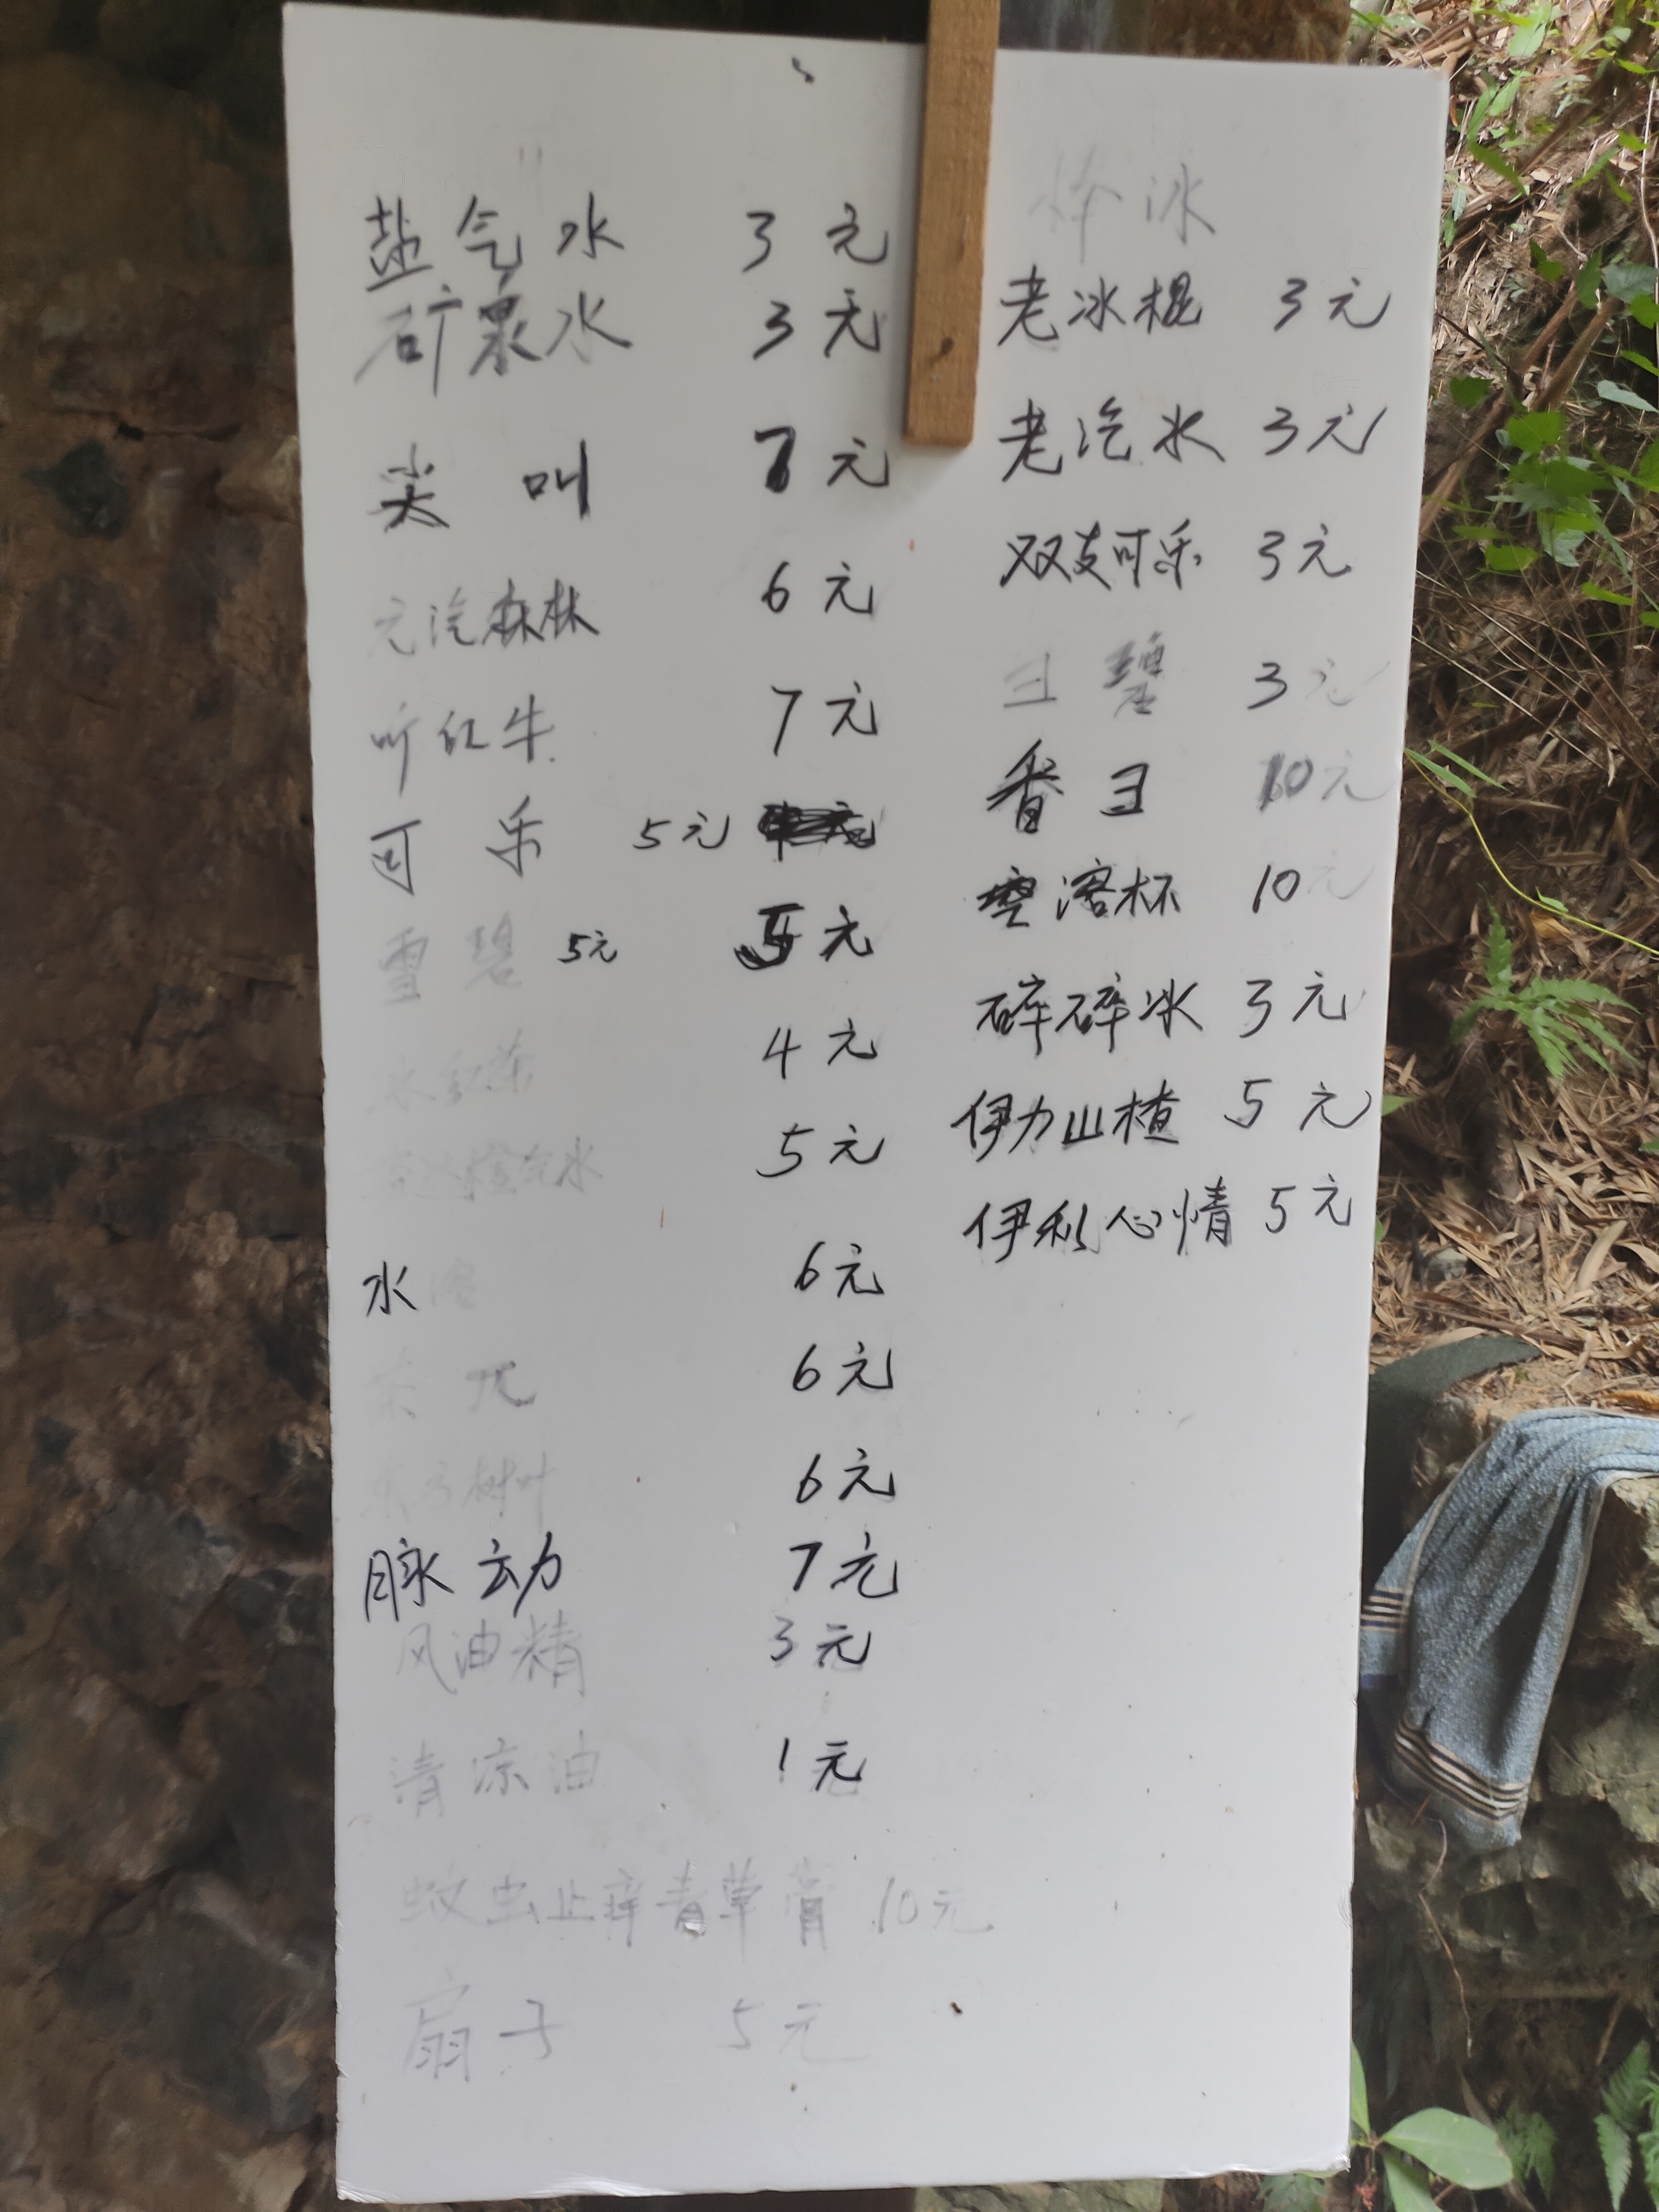 盐气水 3元
矿泉水 3元
尖叫 7元
元汽森林 6元
听红牛 7元
可乐 5元
雪碧 5元 5元
冰红茶 4元
橙气水 5元
水溶 6元
茶π 6元
东方树叶 6元
脉动 7元
风油精 3元
清凉油 1元
蚊虫止痒青草膏 10元
扇子 5元
棒冰
老冰棍 3元
老汽水 3元
双支可乐 3元
3元
10元
溶杯 10元
碎碎冰 3元
伊力山楂 5元
伊利心情 5元